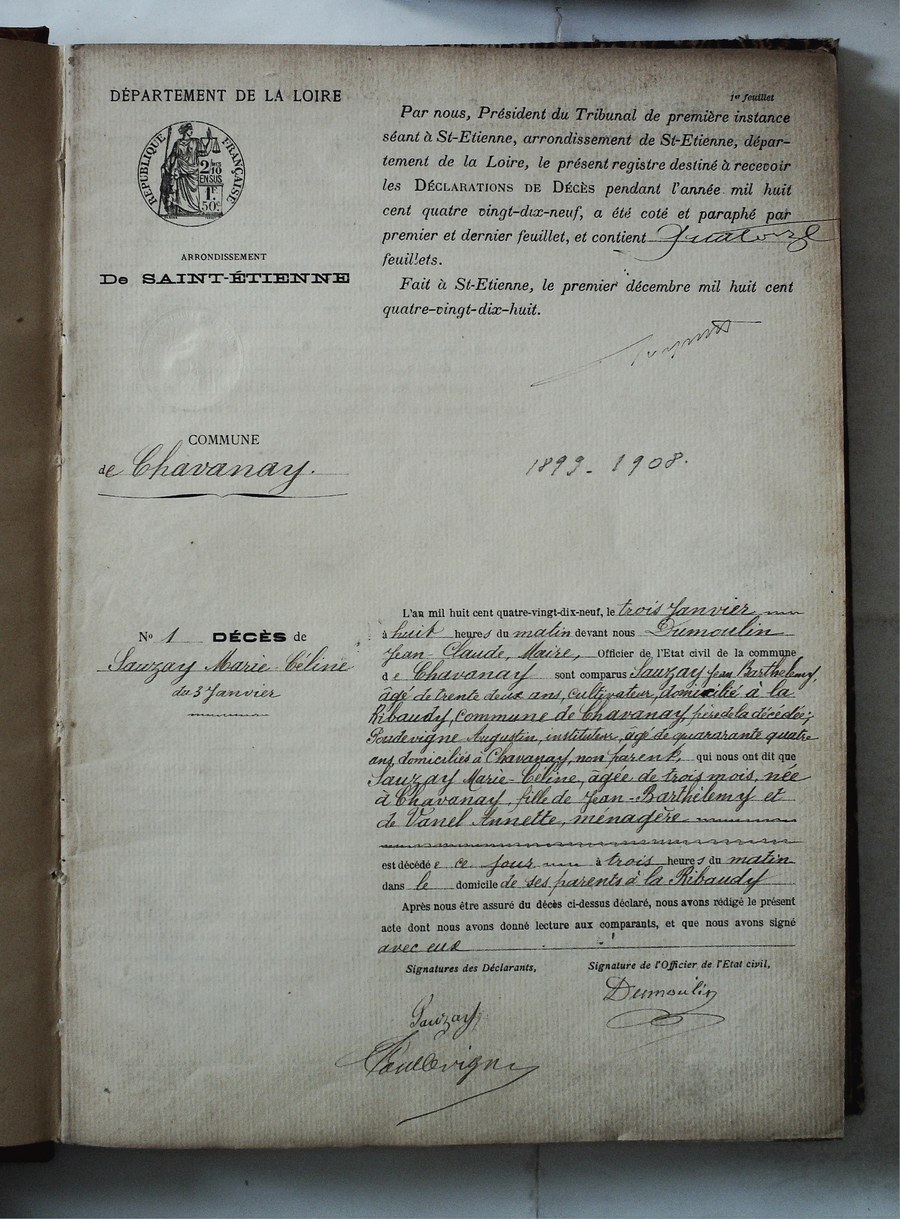 DÉPARTEMENT DE LA LOIRE
RÉPUBLIQUE FRANÇAISE
2/10
EN SUS
1F.
50c
ARRONDISSEMENT
De SAINT-ÉTIENNE
COMMUNE
de Chavanay.
1er feuillet
Par nous, Président du Tribunal de première instance
séant à St-Etienne, arrondissement de St-Etienne, dépar-
tement de la Loire, le présent registre destiné à recevoir
les DÉCLARATIONS DE DÉCÈS pendant l'année mil huit
cent quatre vingt-dix-neuf, a été coté et paraphé par
premier et dernier feuillet, et contient quatorze
feuillets.
Fait à St-Etienne, le premier décembre mil huit cent
quatre-vingt-dix-huit.
1899 - 1908.
No 1 DÉCÈS de
Sauzay Marie-Céline
du 3 Janvier
L'an mil huit cent quatre-vingt-dix-neuf, le trois Janvier
à huit heures du matin devant nous Dumoulin
Jean-Claude, Maire, Officier de l'Etat civil de la commune
de Chavanay sont comparus Sauzay Jean Barthélemy,
âgé de trente deux ans, cultivateur, domicilié à la
Ribaudy, commune de Chavanay, père de la décédée;
Poudevigne Augustin, instituteur, âgé de quararante quatre
ans, domiciliés à Chavanay, non parent, qui nous ont dit que
Sauzay Marie-Céline, âgée de trois mois, née
à Chavanay, fille de Jean-Barthélemy et
de Vanel Annette, ménagère
est décédée ce jour à trois heures du matin
dans le domicile de ses parents à la Ribaudy
Après nous être assuré du décès ci-dessus déclaré, nous avons rédigé le présent
acte dont nous avons donné lecture aux comparants, et que nous avons signé
avec eux
Signatures des Déclarants,
Signature de l'Officier de l'Etat civil,
Dumoulin
Sauzay
Poudevigne